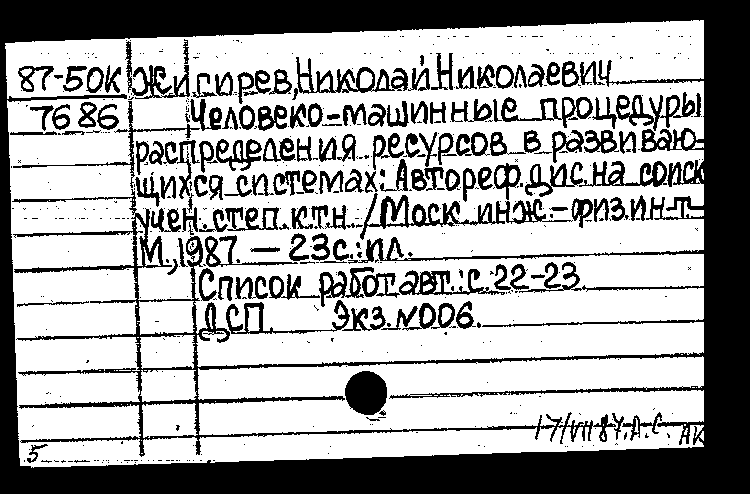 87-50К Жигирев, Николай Николаевич
7686 Человеко-машинные процедуры
распределения ресурсов в развиваю-
щихся системах: Автореф.дис.на соиск
учен.степ.к.т.н. /Моск. инж.-физ.ин-т-
М.,1987. — 23с.:ил.
Список работ авт.:с.22-23
ДСП. Экз.№006.
17/VII 87. А.С. АК
5